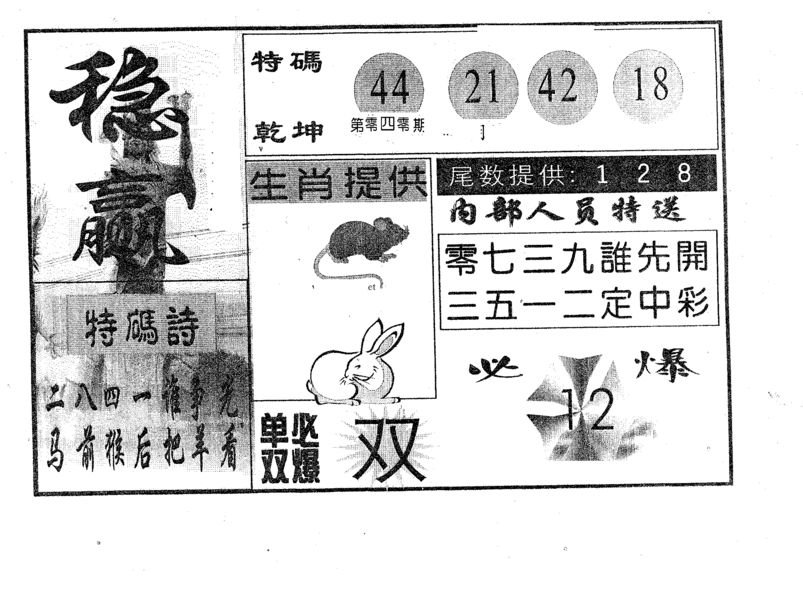 稳
赢
特碼
乾坤
44 21 42 18
第零四零期
生肖提供
尾数提供: 1 2 8
内部人员特送
零七三九誰先開
三五一二定中彩
特碼詩
二八四一谁争先
马前猴后把羊看
单双
必爆
双
必爆
12